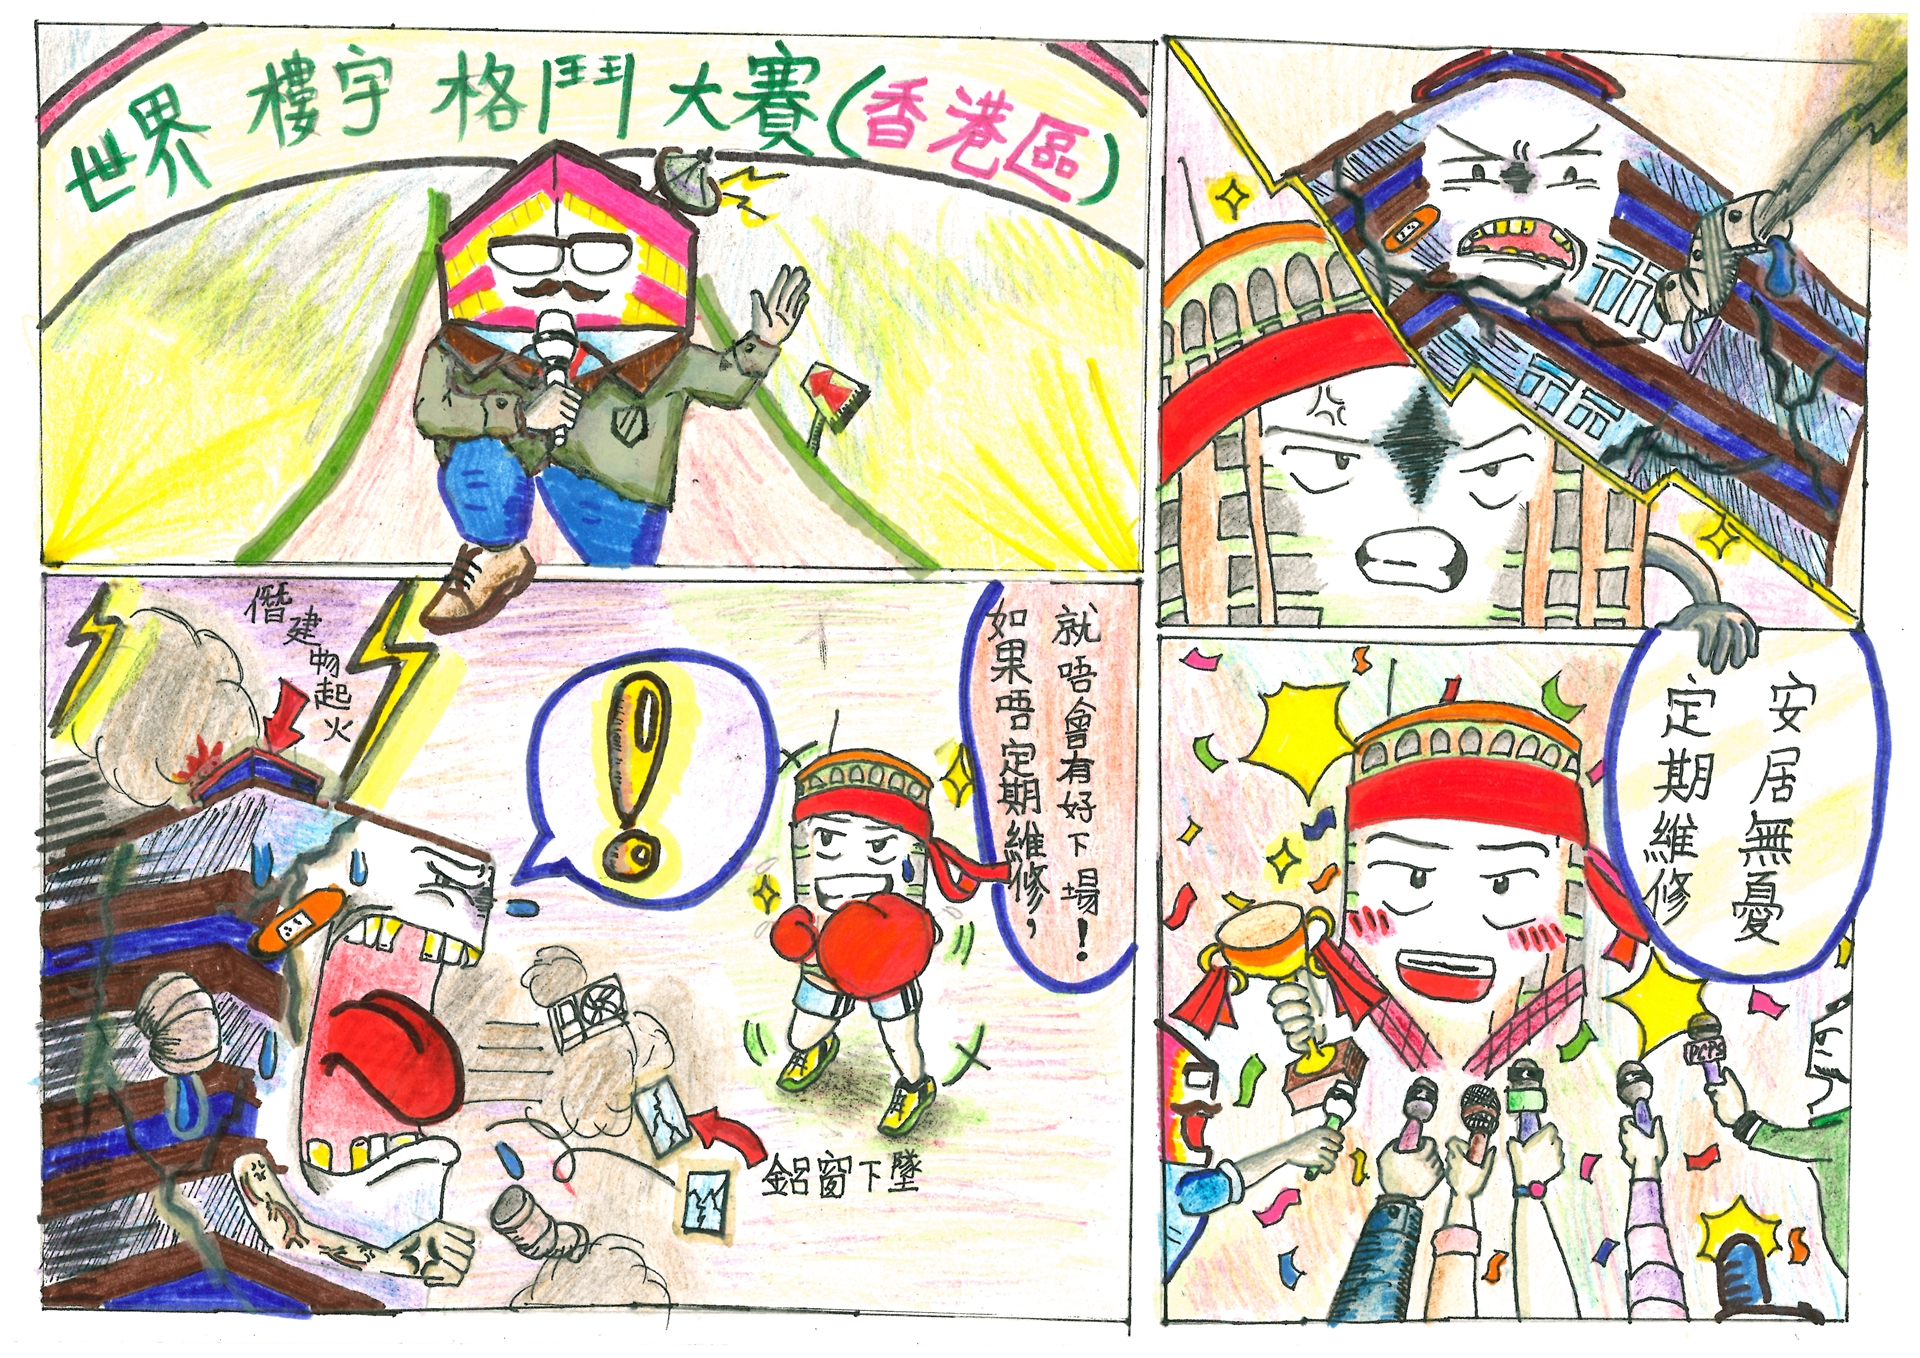 世界樓宇格鬥大賽(香港區)
僭建物起火
!
如果唔定期維修,
就唔會有好下場!
鋁窗下墜
定期維修
安居無憂
PCPS